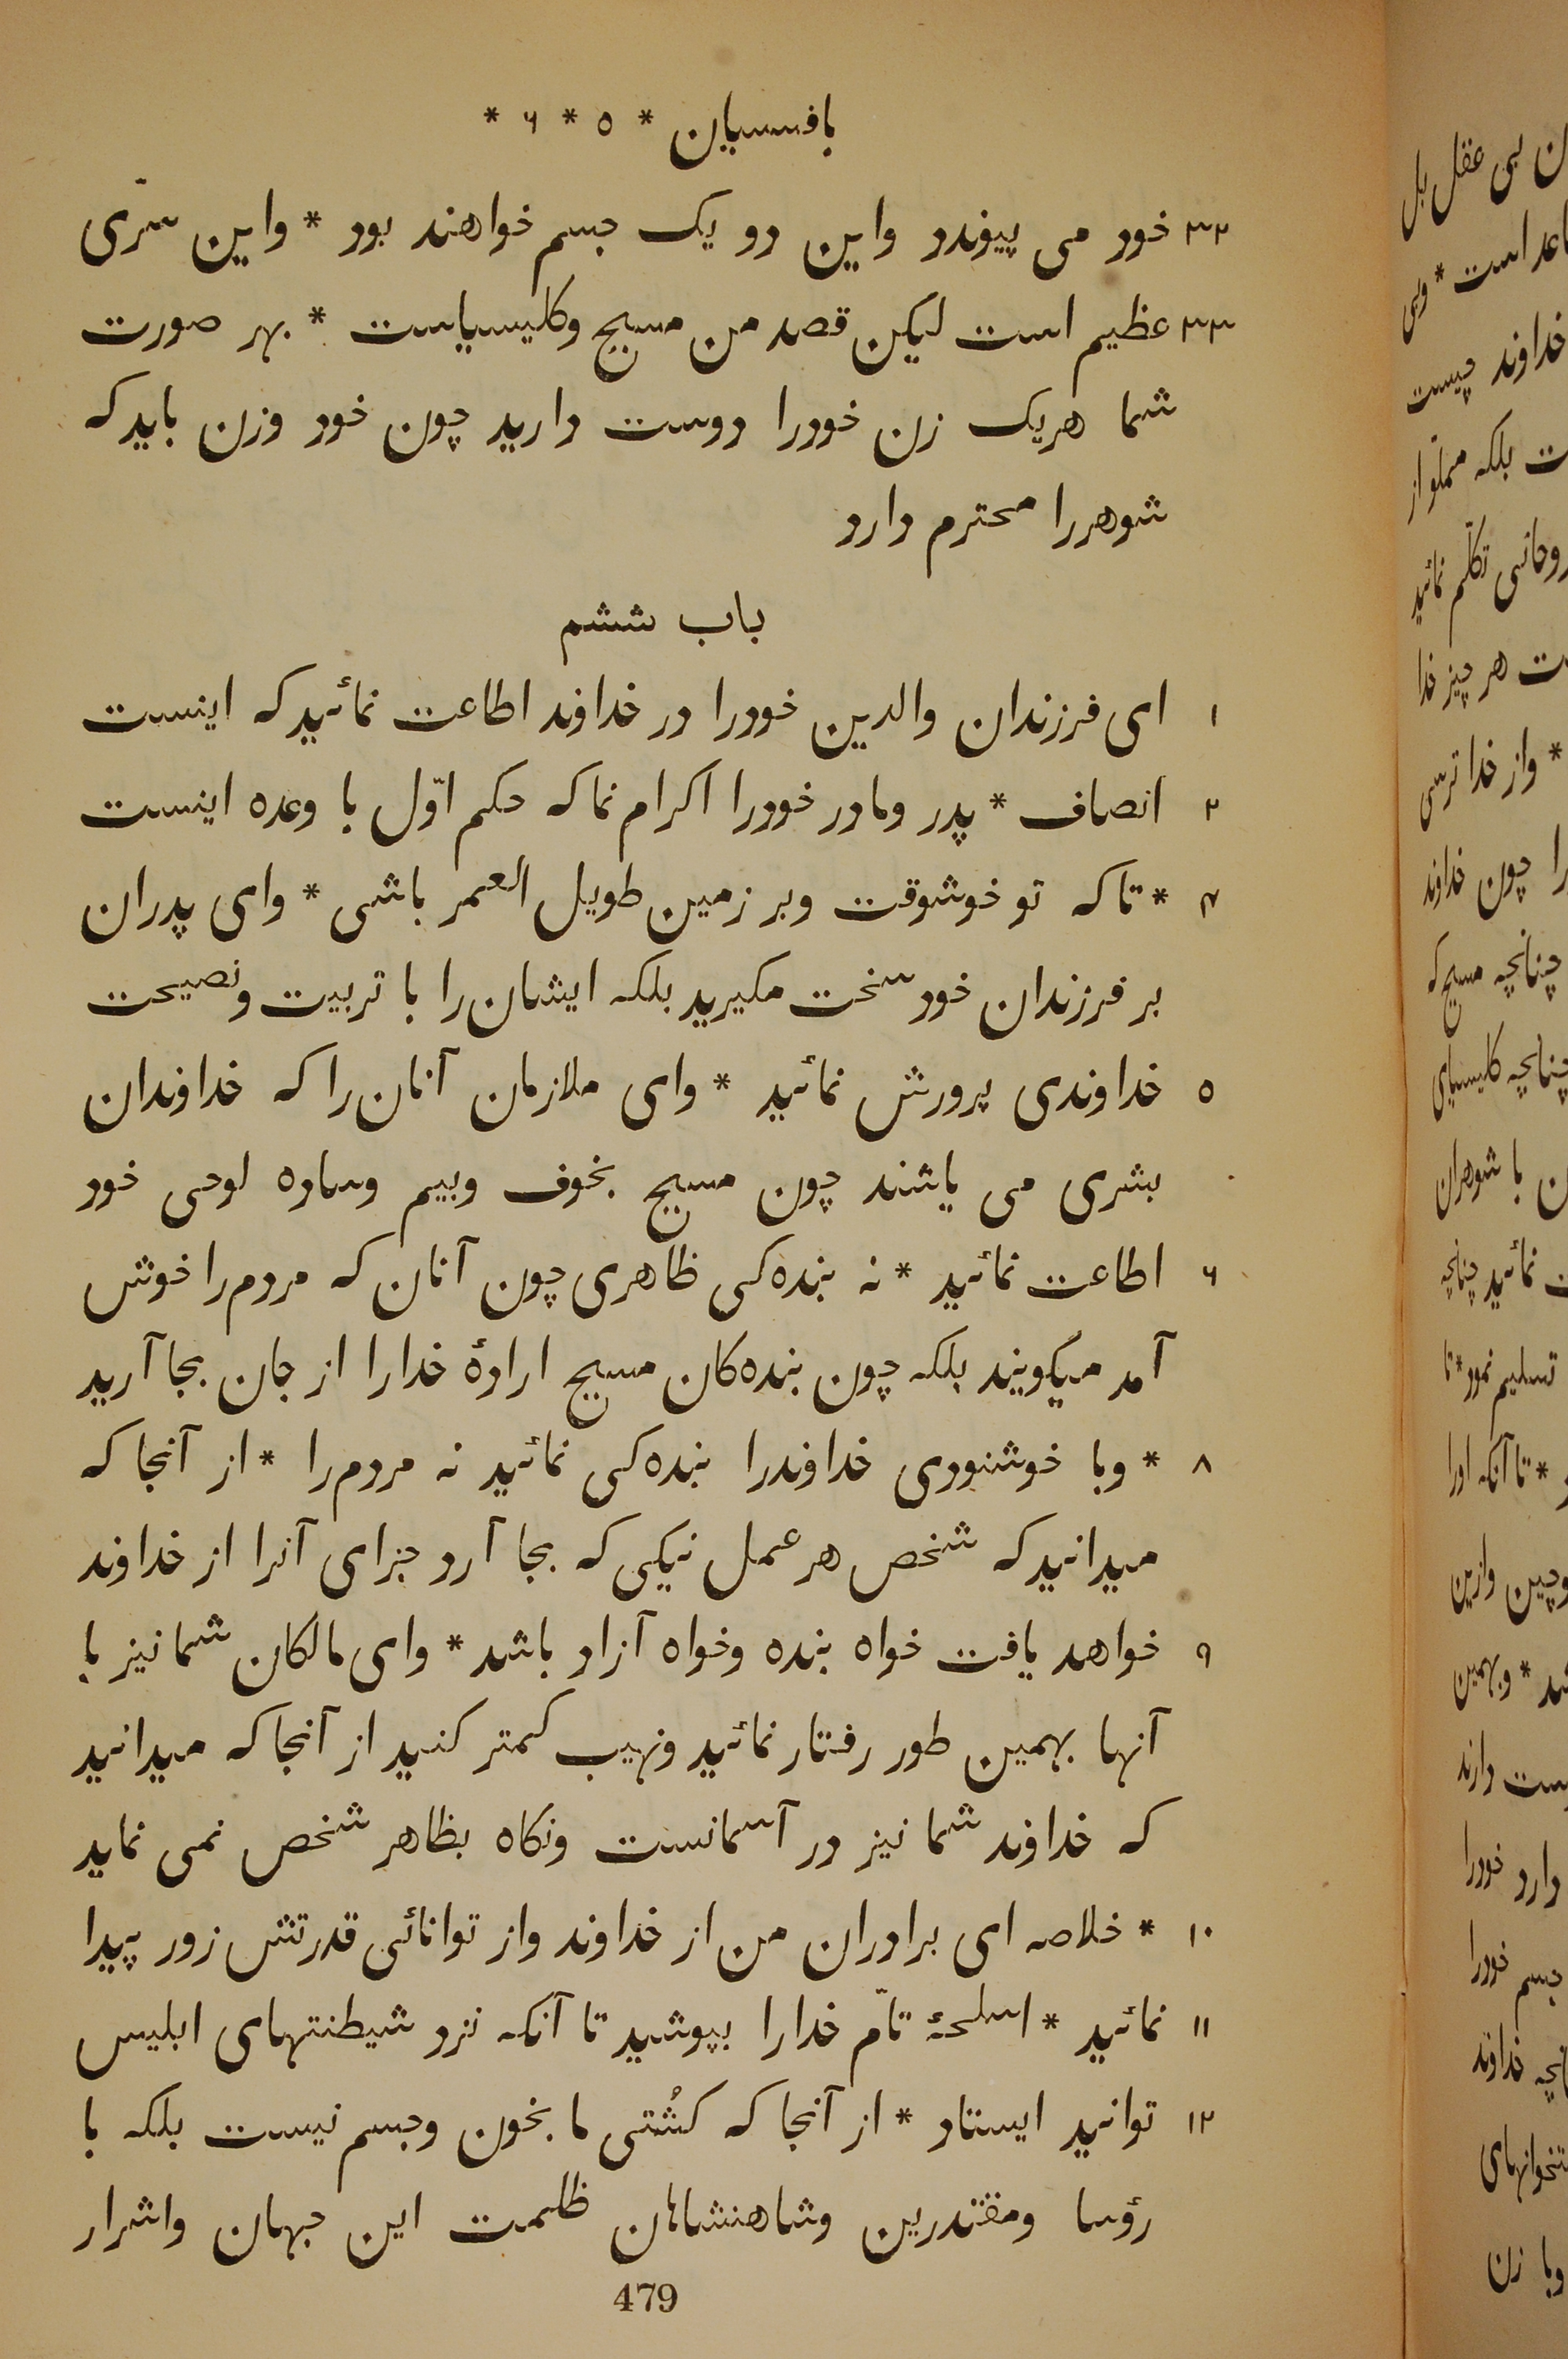 بافسسیان * ۵ * ۶ *
۳۲ خود می پیوندد واین دو یک جسم خواهند بود * واین سرّی
۳۳ عظیم است لیکن قصد من مسیح وکلیسیاست * بهر صورت
شما هریک زن خودرا دوست دارید چون خود وزن باید که
شوهررا محترم دارد
باب ششم
۱ ای فرزندان والدین خودرا در خداوند اطاعت نمائید که اینست
۲ انصاف * پدر ومادر خودرا اکرام نما که حکم اوّل با وعده اینست
۴ * تا که تو خوشوقت وبر زمین طویل العمر باشی * وای پدران
بر فرزندان خود سخت مکیرید بلکه ایشان را با تربیت ونصیحت
۵ خداوندی پرورش نمائید * وای ملازمان آنان را که خداوندان
بشری می باشند چون مسیح بخوف وبیم وساده لوحی خود
۶ اطاعت نمائید * نه بنده کی ظاهری چون آنان که مردم را خوش
آمد میکویند بلکه چون بنده کان مسیح ارادهٔ خدارا از جان بجا آرید
۸ * وبا خوشنودی خداوندرا بنده کی نمائید نه مردم را * از آنجا که
میدانید که شخص هر عمل نیکی که بجا آرد جزای آنرا از خداوند
۹ خواهد یافت خواه بنده وخواه آزاد باشد * وای مالکان شما نیز با
آنها بهمین طور رفتار نمائید ونهیب کمتر کنید از آنجا که میدانید
که خداوند شما نیز در آسمانست ونکاه بظاهر شخص نمی نماید
۱۰ * خلاصه ای برادران من از خداوند واز توانائی قدرتش زور پیدا
۱۱ نمائید * اسلحهٔ تامّ خدارا بپوشید تا آنکه نزد شیطنتهای ابلیس
۱۲ توانید ایستاد * از آنجا که کُشتی ما بخون وجسم نیست بلکه با
رؤسا ومقتدرین وشاهنشاهان ظلمت این جهان واشرار
479
ن بی عقل بل
است * وبی
خداوند چیست
ت بلکه مملو از
روحانی تکلّم نمائید
ت هر چیز خدا
* واز خدا ترسی
را چون خداوند
چنانچه مسیح که
چنانچه کلیسیای
ن با شوهران
ت نمائید چنانچه
تسلیم نمود * تا
* تا آنکه اورا
وچین وازین
شد * وبهمین
ست دارند
دارد خودرا
جسم خودرا
نچه خداوند
ستخوانهای
وبا زن